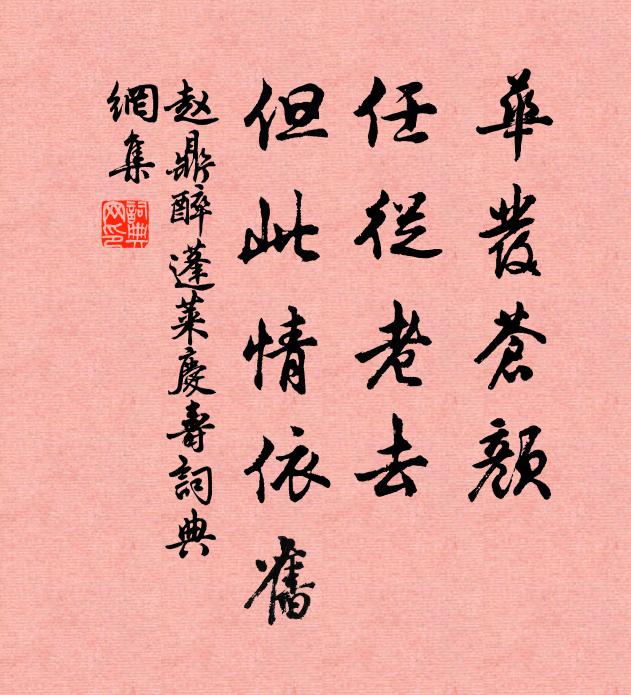 華發蒼顔
任從老去
但此情依舊
赵鼎醉蓬萊慶壽詞典
網集
詞典
网印